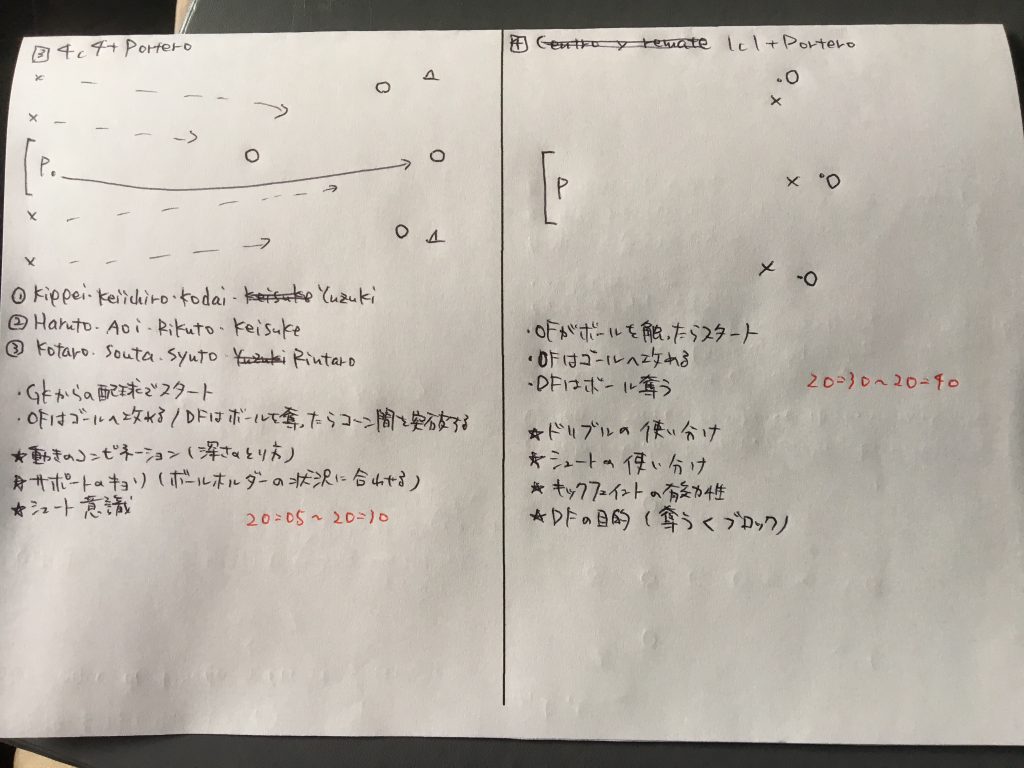 3 4c4+Portero
P.
① Kippei・Keiichiro・Kodai・Keisuke Yuzuki
② Haruto・Aoi・Rikuto・Keisuke
③ Kotaro・Souta・Syuto・Yuzuki Rintaro
・GKからの配球でスタート
・OFはゴールへ攻める/DFはボールを奪ったらコーン間を突破する
★動きのコンビネーション(深さのとり方)
★サポートのキョリ(ボールホルダーの状況に合わせる)
★シュート意識
20:05~20:30
4 Centro y remate 1c1+Portero
P
・OFがボールを触ったらスタート
・OFはゴールへ攻める
・DFはボール奪う
20:30~20:40
★ドリブルの使い分け
★シュートの使い分け
★キックフェイントの有効性
★DFの目的(奪う<ブロック)